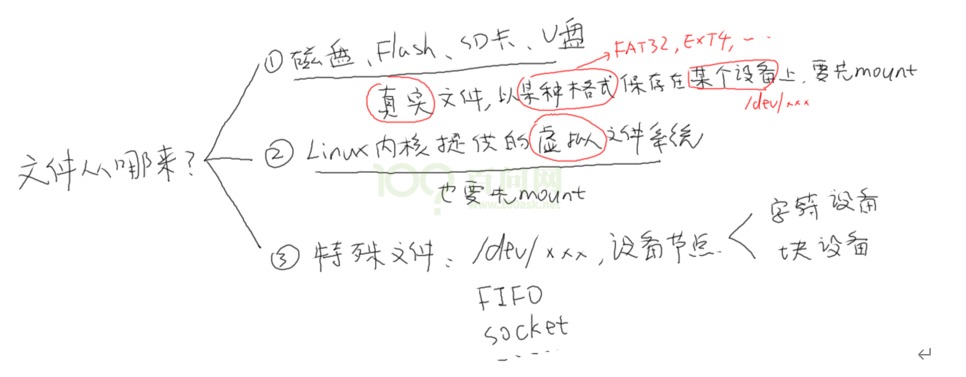 FAT32, EXT4, ...
① 磁盘、Flash、SD卡、U盘
真实文件, 以某种格式保存在某个设备上, 要先mount
/dev/xxx
文件从哪来?
② Linux内核提供的虚拟文件系统
100ask 百问网
也要先mount
字符设备
③ 特殊文件: /dev/xxx, 设备节点
块设备
FIFO
socket
......